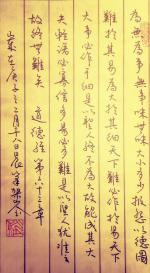 為無為事無事味無味大小多少報怨以德圖
難於其易為大於其細天下難必作於易天下
大事必作于細是以聖人終不為大故能成其大
夫輕諾必寡信多易必多難是以聖人猶難之
故終無難矣 道德經第六十三章
歲在庚子三月十八日晨